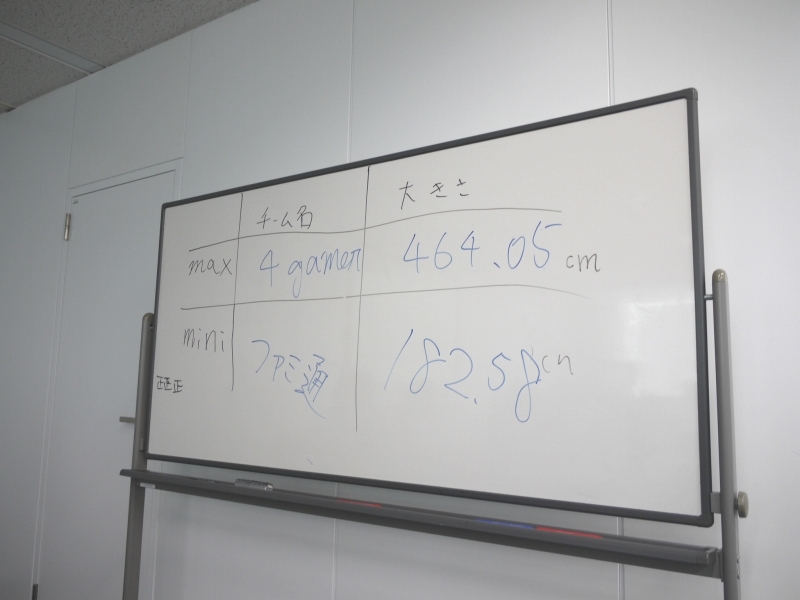 チーム名 大きさ
max 4gamer 464.05cm
mini ファミ通 182.58cm
正正正